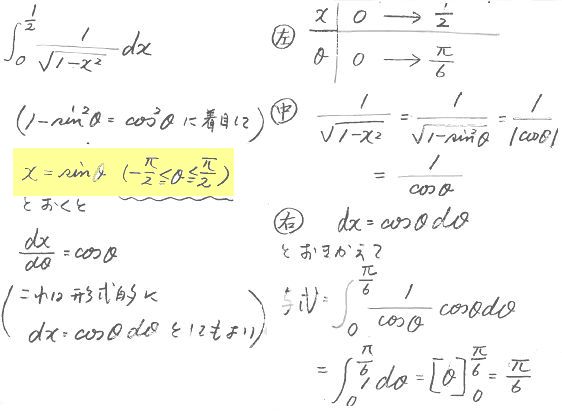 ∫₀^{1/2} 1/√(1-x²) dx
(1-sin²θ = cos²θ に着目して)
x = sinθ (-π/2 ≦ θ ≦ π/2)
とおくと
dx/dθ = cosθ
(これは形式的に
dx = cosθ dθ としてもよい)
左
x | 0 → 1/2
θ | 0 → π/6
中
1/√(1-x²) = 1/√(1-sin²θ) = 1/|cosθ|
= 1/cosθ
右 dx = cosθ dθ
とおきかえて
与式 = ∫₀^{π/6} 1/cosθ cosθ dθ
= ∫₀^{π/6} 1 dθ = [θ]₀^{π/6} = π/6